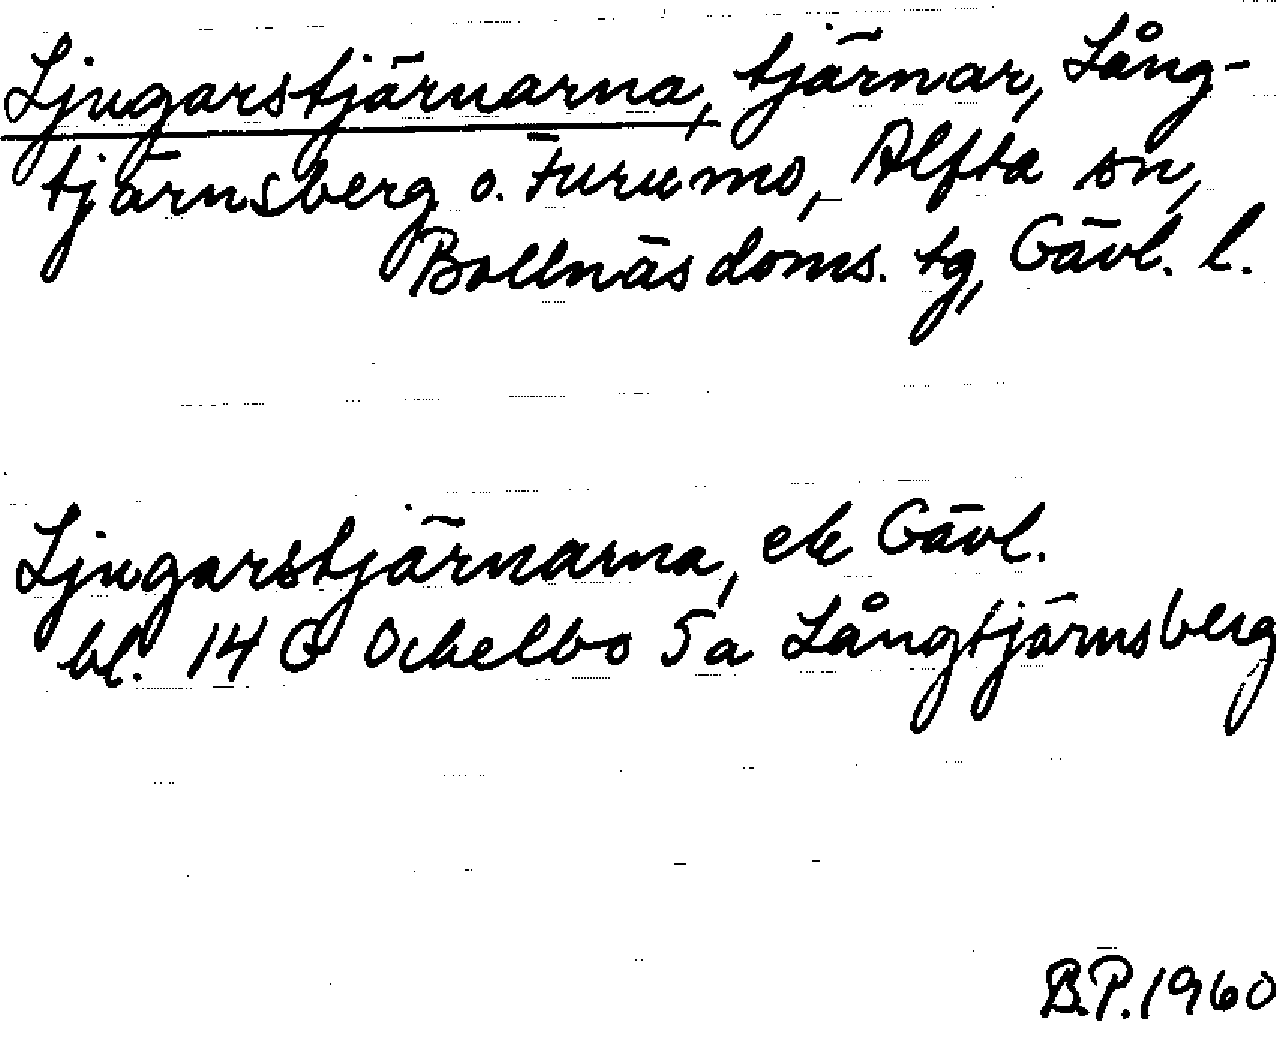 Ljugarstjärnarna, tjärnar, Lång-
tjärnsberg o. Furumo, Alfta sn,
Bollnäs doms. tg, Gävl. l.
Ljugarstjärnarna, ek Gävl.
bl. 14 G Ockelbo 5a Långtjärnsberg
B.P. 1960